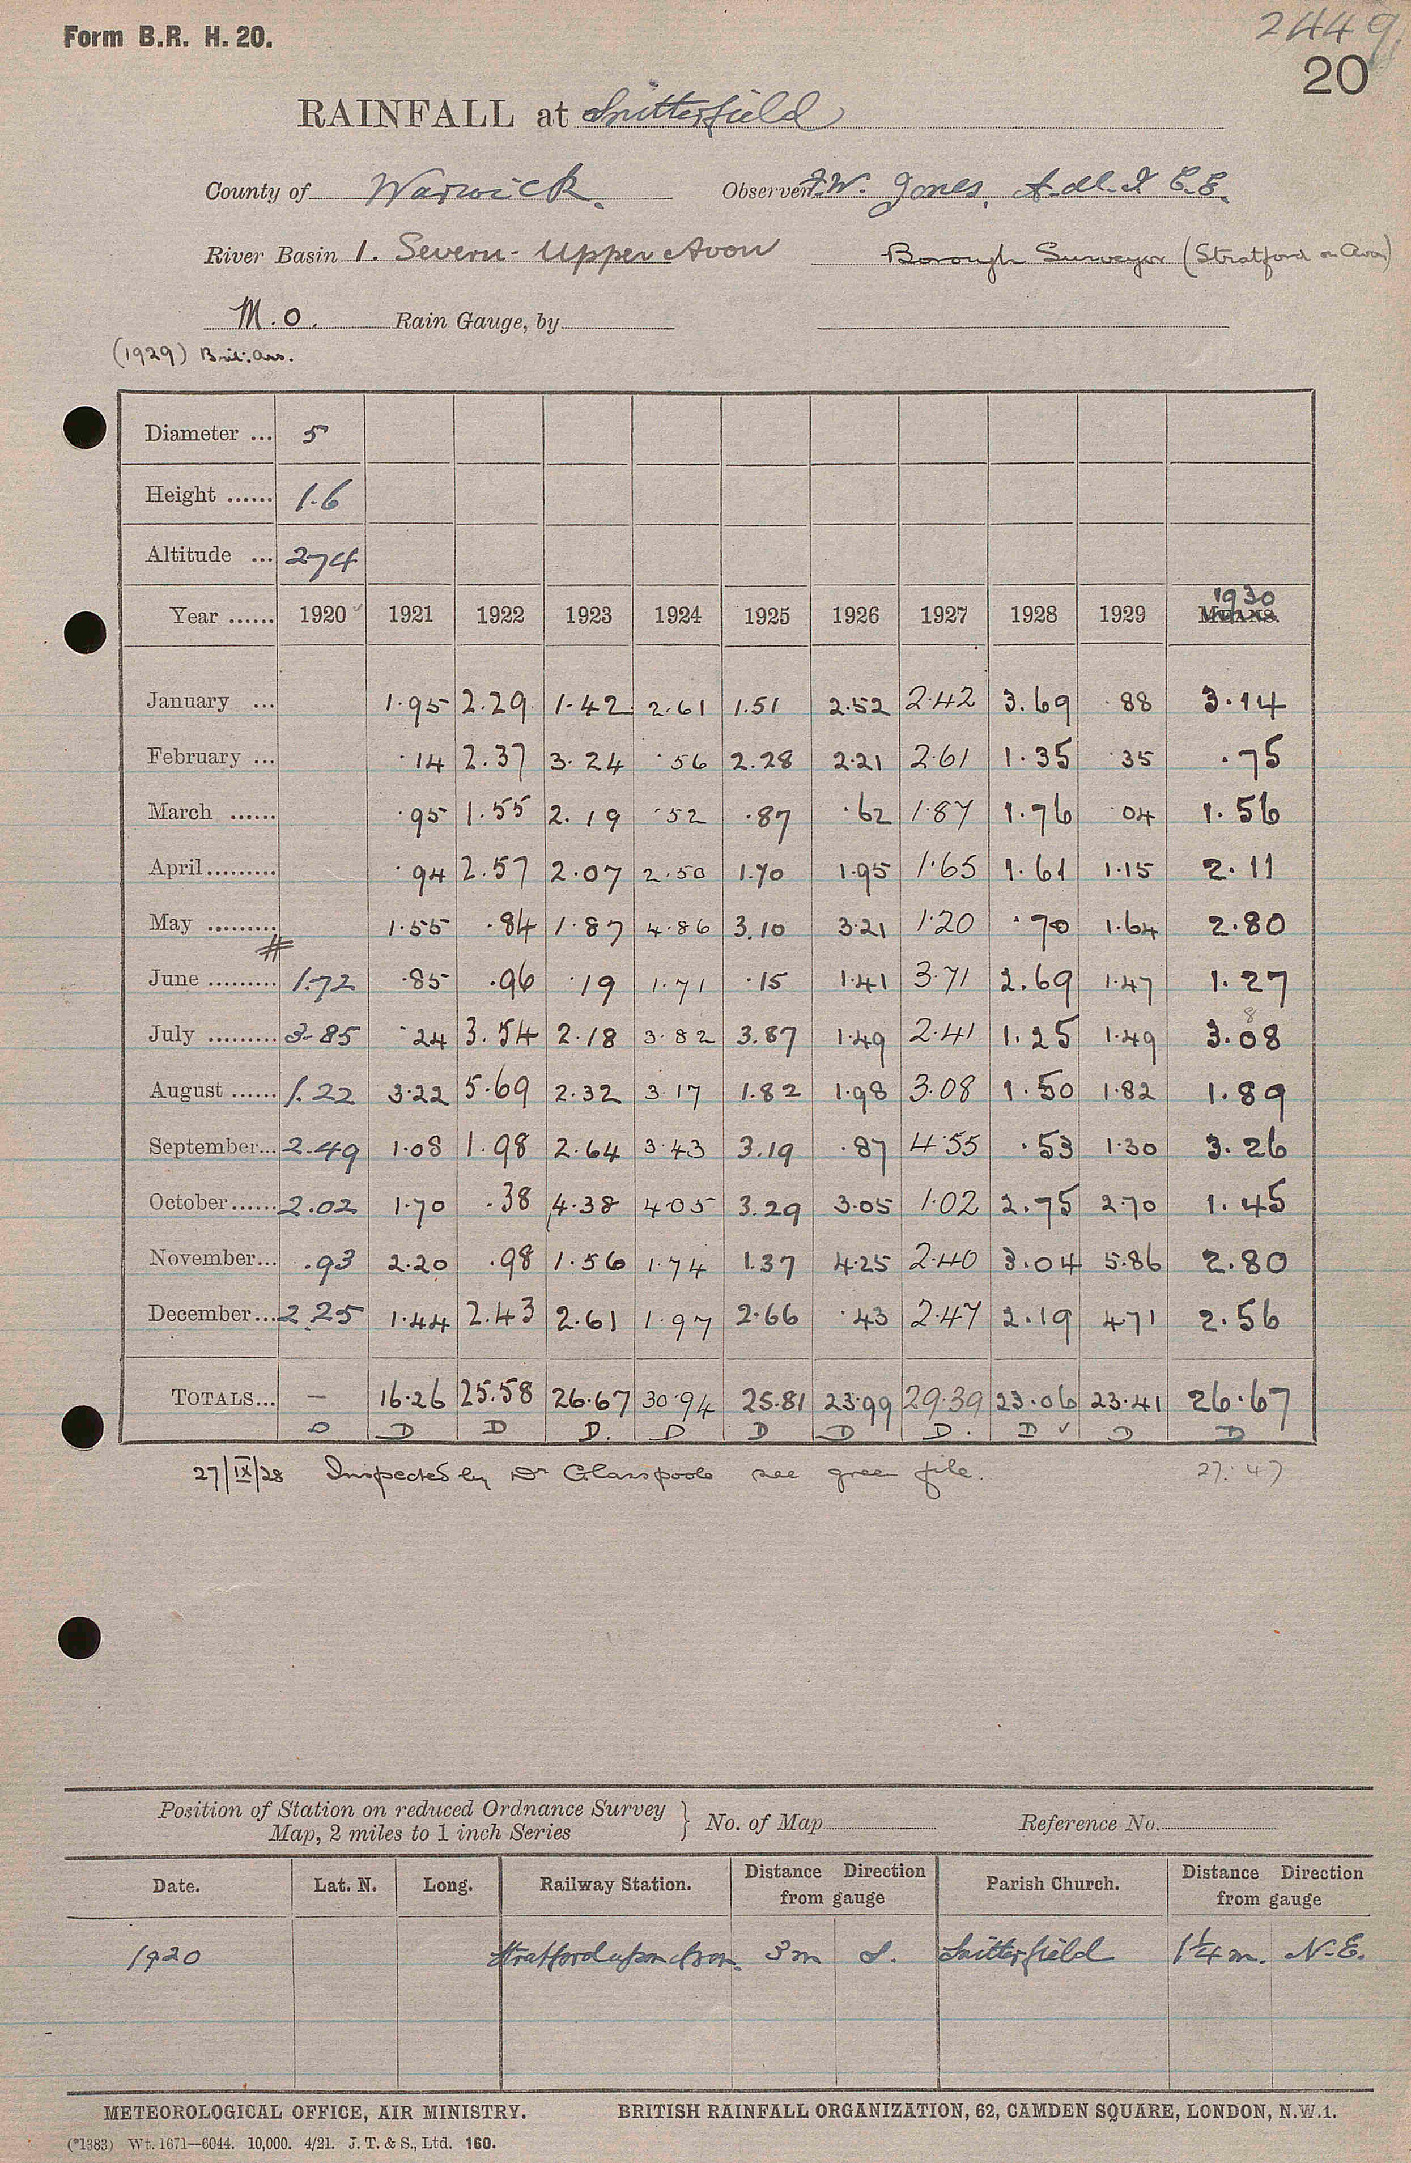 Form B.R. H. 20.
2449
20
RAINFALL at Snitterfield
County of Warwick. Observer F.W. Jones, A.M.I.C.E.
River Basin 1. Severn - Upper Avon Borough Surveyor (Stratford on Avon)
M.O. Rain Gauge, by
(1929) Brit: Ass.
Diameter ... 5
Height ...... 1.6
Altitude ... 274
1930
Year ...... 1920 1921 1922 1923 1924 1925 1926 1927 1928 1929 MEANS.
January ... 1.95 2.29 1.42 2.61 1.51 2.52 2.42 3.69 .88 3.14
February ... .14 2.37 3.24 .56 2.28 2.21 2.61 1.35 .35 .75
March ...... .95 1.55 2.19 .52 .87 .62 1.87 1.76 .04 1.56
April ......... .94 2.57 2.07 2.50 1.70 1.95 1.65 1.61 1.15 2.11
May ......... 1.55 .84 1.87 4.86 3.10 3.21 1.20 .70 1.64 2.80
#
June ......... 1.72 .85 .96 .19 1.71 .15 1.41 3.71 2.69 1.47 1.27
8
July ......... 3.85 .24 3.54 2.18 3.82 3.87 1.49 2.41 1.25 1.49 3.08
August ...... 1.22 3.22 5.69 2.32 3.17 1.82 1.98 3.08 1.50 1.82 1.89
September... 2.49 1.08 1.98 2.64 3.43 3.19 .87 4.55 .53 1.30 3.26
October ...... 2.02 1.70 .38 4.38 4.05 3.29 3.05 1.02 2.75 2.70 1.45
November... .93 2.20 .98 1.56 1.74 1.37 4.25 2.40 3.04 5.86 2.80
December... 2.25 1.44 2.43 2.61 1.97 2.66 .43 2.47 2.19 4.71 2.56
TOTALS... — 16.26 25.58 26.67 30.94 25.81 23.99 29.39 23.06 23.41 26.67
D D D D. D D D D. D ✓ D D
27/IX/28 Inspected by Dr Glasspoole see green file. 27.47
Position of Station on reduced Ordnance Survey
Map, 2 miles to 1 inch Series } No. of Map Reference No.
Date. Lat. N. Long. Railway Station. Distance Direction from gauge Parish Church. Distance Direction from gauge
1920 Stratford upon Avon. 3 m S. Snitterfield 1¼ m. N.E.
METEOROLOGICAL OFFICE, AIR MINISTRY. BRITISH RAINFALL ORGANIZATION, 62, CAMDEN SQUARE, LONDON, N.W.1.
(*1383) Wt. 1671—6044. 10,000. 4/21. J. T. & S., Ltd. 160.